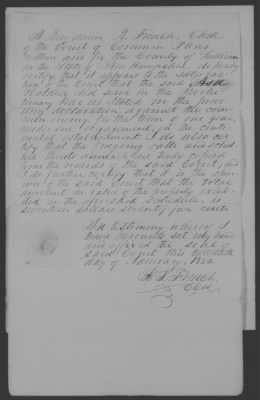 I Benjamin B. French, Clerk
of the Court of Common Pleas
within and for the County of
in the State of New Hampshire, do hereby
certify that it appears to the satisfac
tion of the Court that the said Asa
Holden did serve in the Revolu
tionary War as stated in the prece
ding declaration against the com
mon enemy, for the term of one year,
under one engagement, on the conti
nental establishment. I do also cer
tify that the foregoing oath and sched
ule thereto annexed are truly copied
from the records of the said Court; and
I do further certify that it is the opin
ion of the said Court that the total
amount in value of the property exhib
ited in the aforesaid Schedule, is
seventeen dollars seventy five cents
In testimony whereof I
have hereunto set my hand
and affixed the seal of
said Court this
day of January, 1832
B. B. French
Clerk